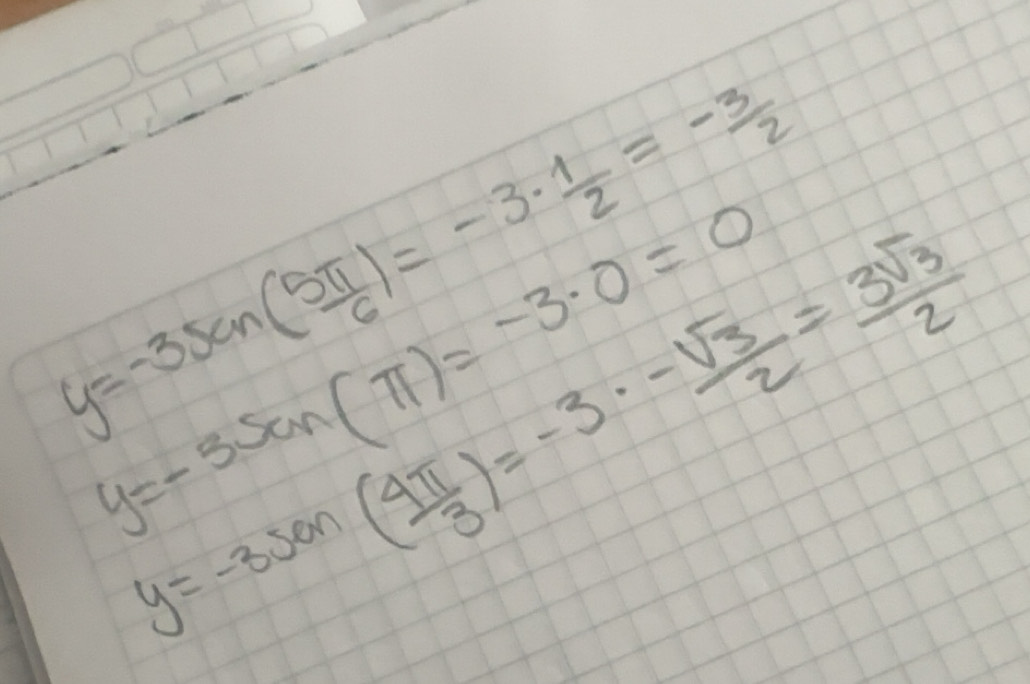 y=-3sen(5π/6)= -3·1/2 = -3/2
y=-3sen(π)= -3·0=0
y=-3sen(4π/3)= -3·-√3/2=3√3/2